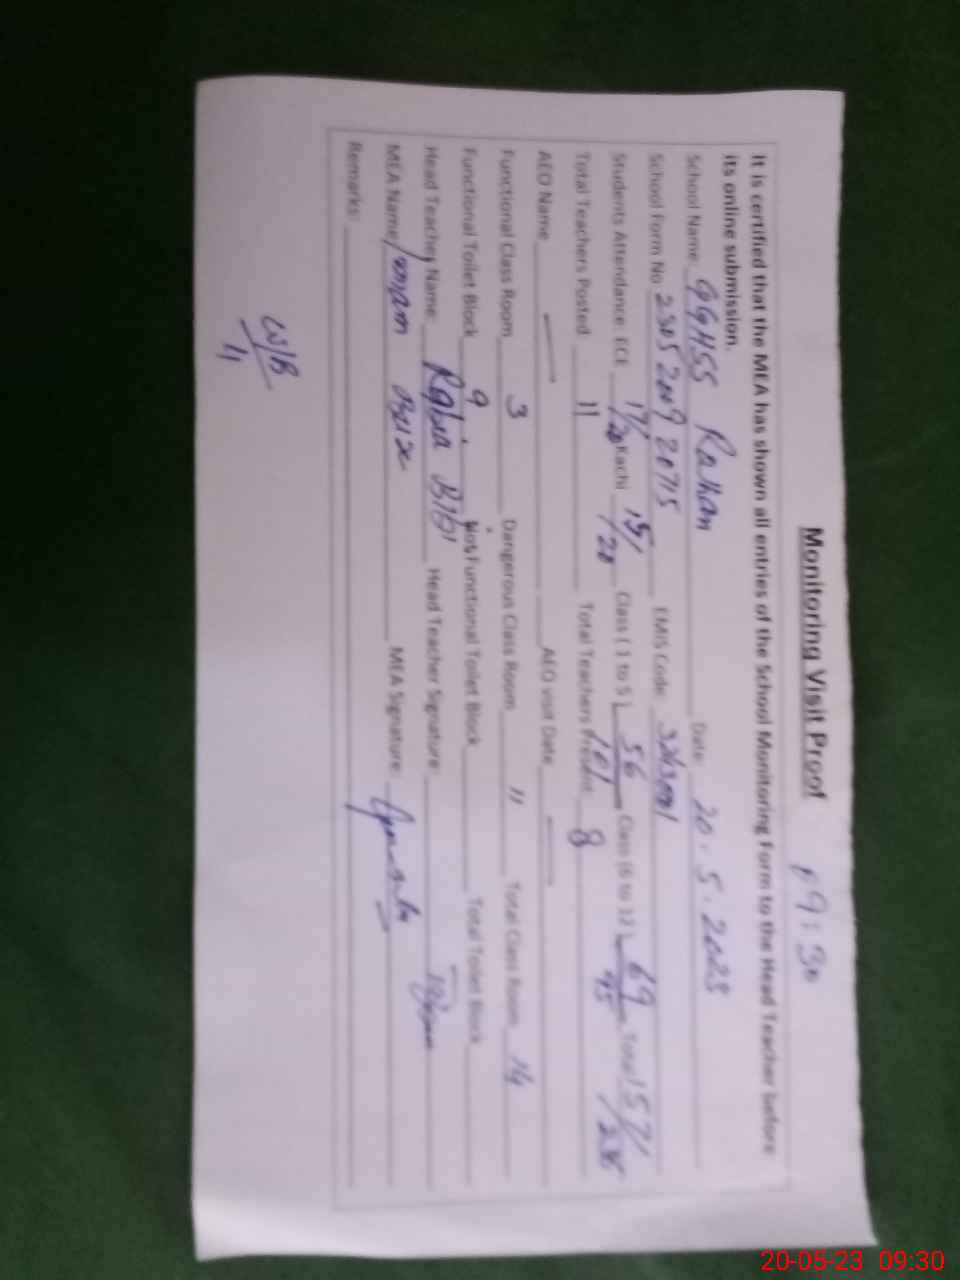 Monitoring Visit Proof 09:30
It is certified that the MEA has shown all entries of the School Monitoring Form to the Head Teacher before
its online submission.
School Name: GGHSS Date: 20.5.2023
School Form No 2305200920715 EMIS Code:
Students Attendance: ECE 17/20 Kachi 15/20 Class (1 to 5) 56/101 Class (6 to 12) 69/95 Total 157/236
Total Teachers Posted: 11 Total Teachers Present: 8
AEO Name — AEO visit Date —
Functional Class Room 3 Dangerous Class Room 11 Total Class Room 14
Functional Toilet Block 9 Not Functional Toilet Block Total Toilet Block
Head Teacher Name: Rabia Bibi Head Teacher Signature:
MEA Name MEA Signature:
Remarks:
W/B
20-05-23 09:30